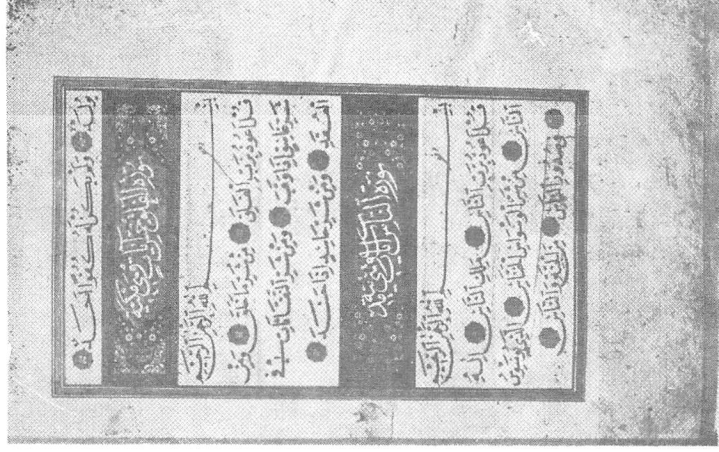 يُولَدْ وَلَمْ يَكُنْ لَهُ كُفُوًا اَحَدٌ
سورة الفلق
بِسْمِ اللهِ الرَّحْمٰنِ الرَّحِيمِ
قُلْ اَعُوذُ بِرَبِّ الْفَلَقِ مِنْ شَرِّ مَا خَلَقَ وَمِنْ
شَرِّ غَاسِقٍ اِذَا وَقَبَ وَمِنْ شَرِّ النَّفَّاثَاتِ فِي
الْعُقَدِ وَمِنْ شَرِّ حَاسِدٍ اِذَا حَسَدَ
سورة الناس
بِسْمِ اللهِ الرَّحْمٰنِ الرَّحِيمِ
قُلْ اَعُوذُ بِرَبِّ النَّاسِ مَلِكِ النَّاسِ اِلٰهِ
النَّاسِ مِنْ شَرِّ الْوَسْوَاسِ الْخَنَّاسِ الَّذِي يُوَسْوِسُ
فِي صُدُورِ النَّاسِ مِنَ الْجِنَّةِ وَالنَّاسِ